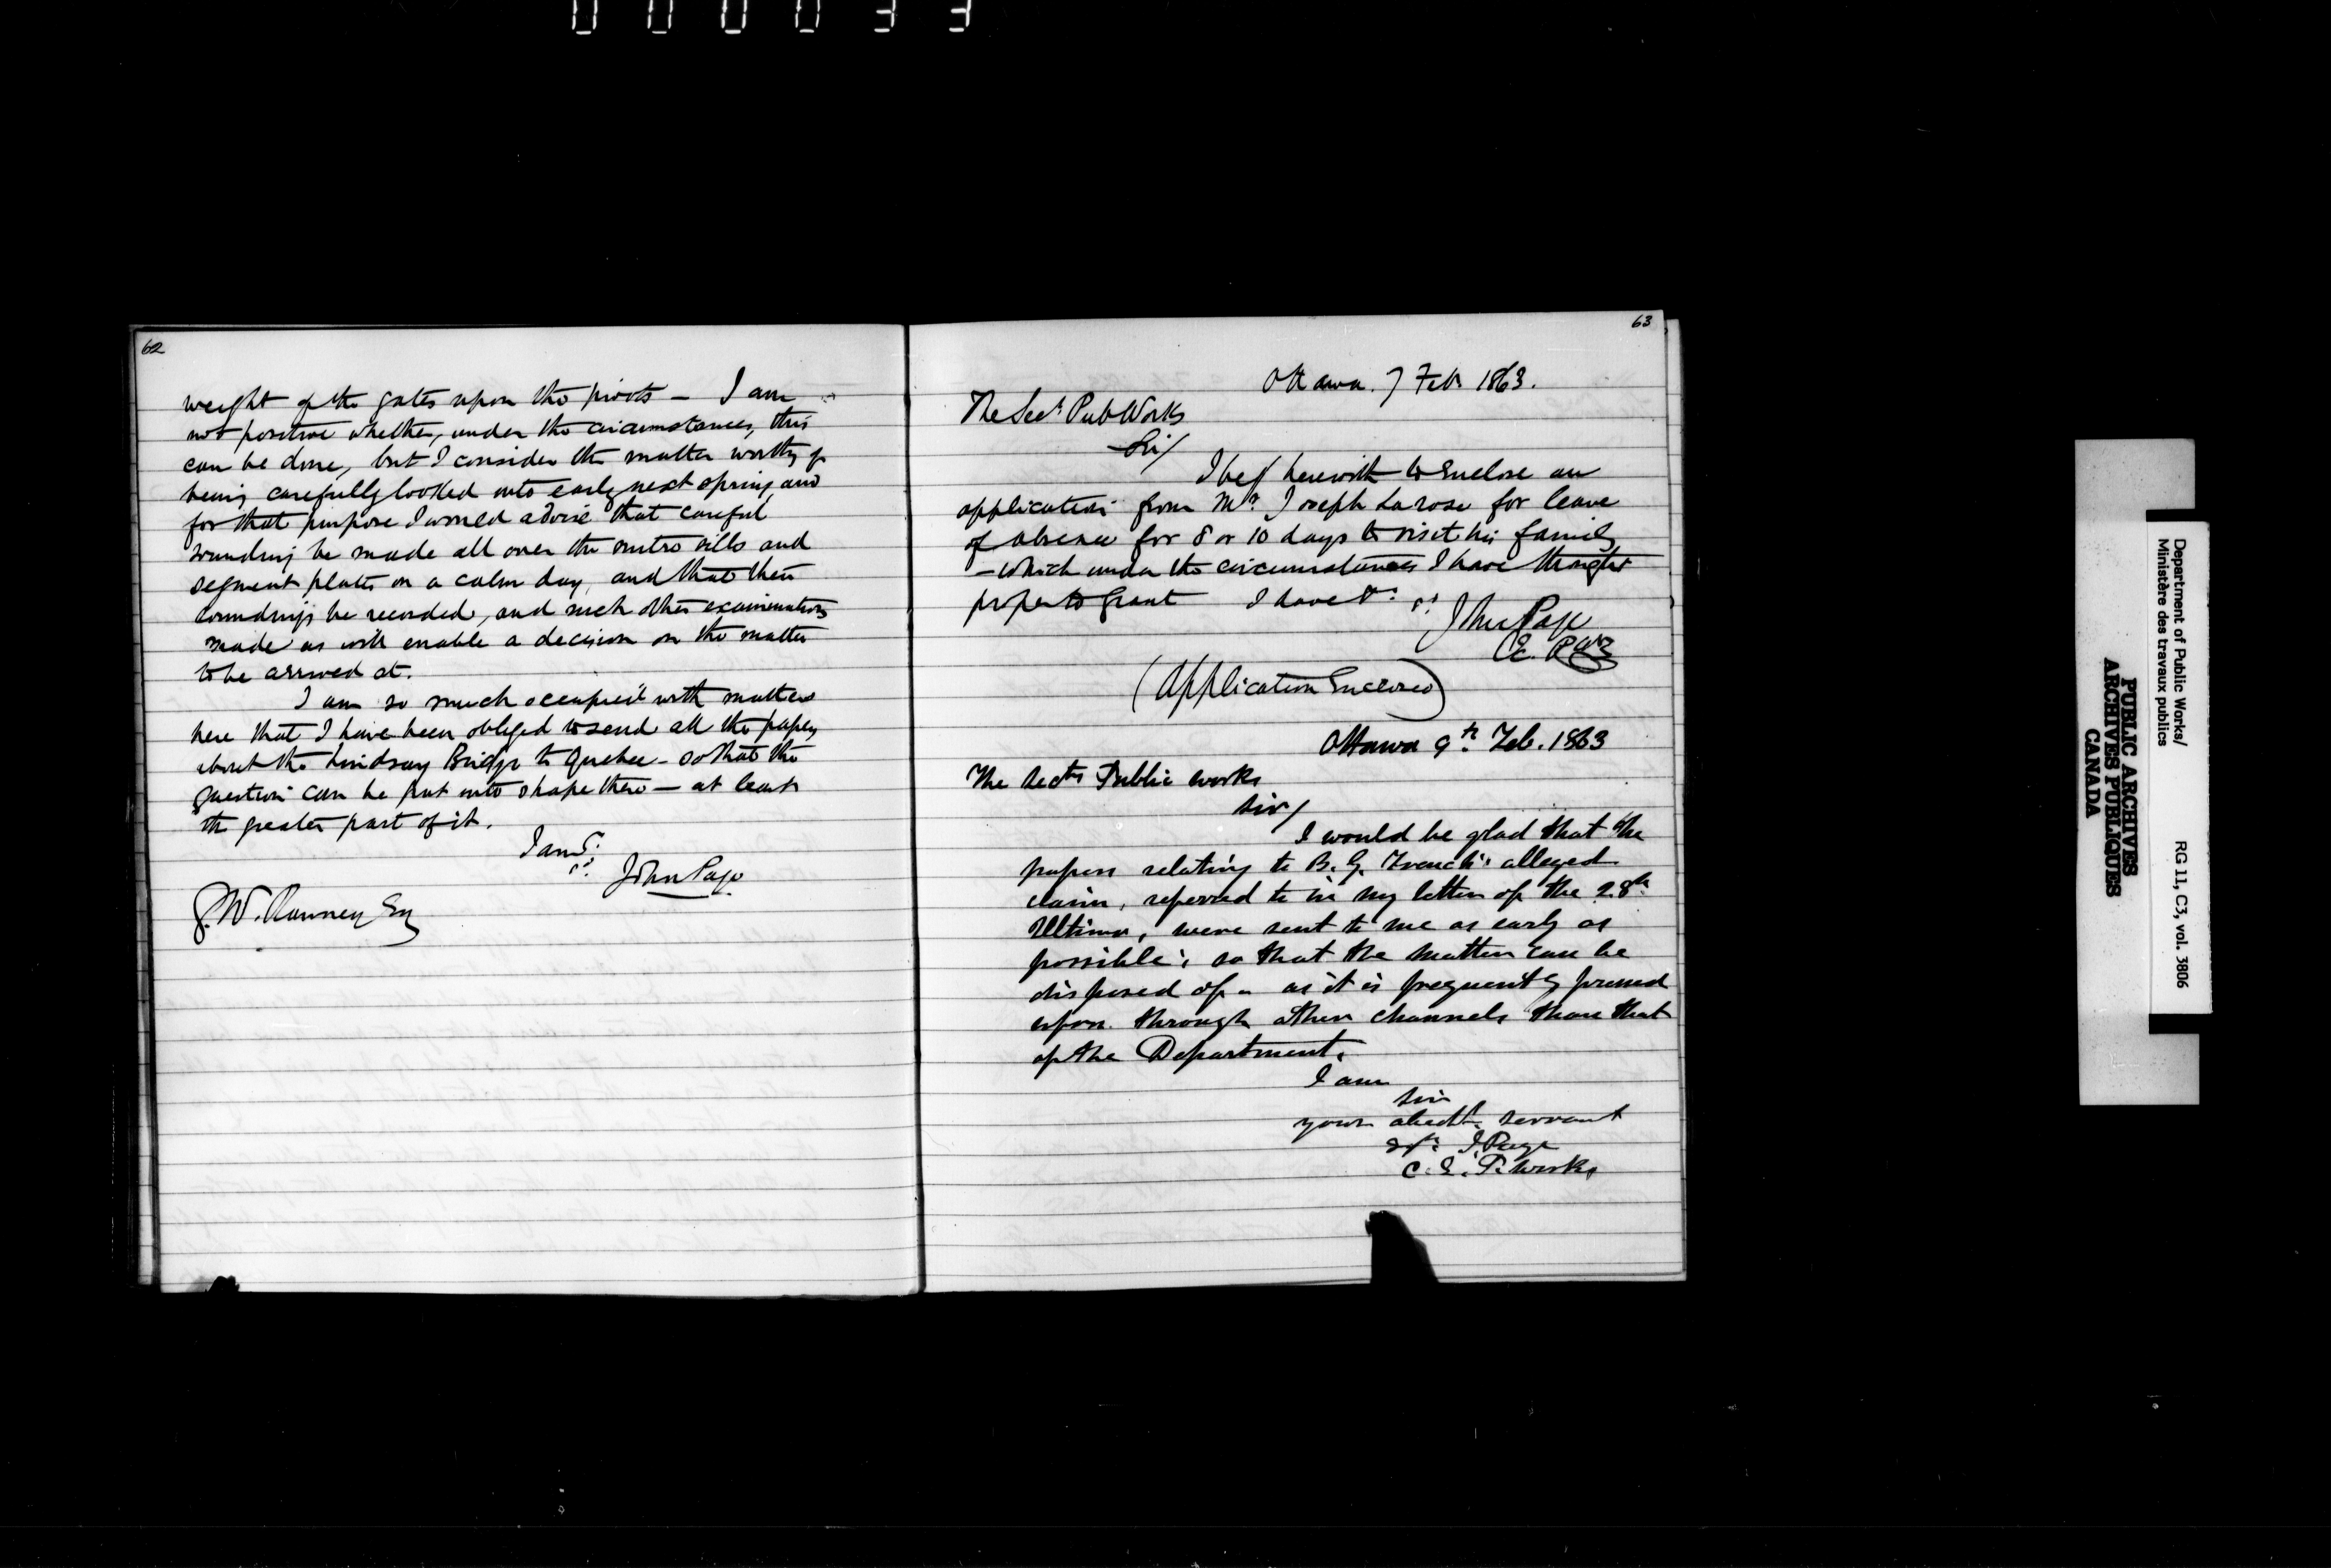 000033
62
weight of the gates upon the pivots – I am
not positive whether, under the circumstances, this
can be done, but I consider the matter worthy of
being carefully looked into early next spring, and
for that purpose I would advise that careful
sounding be made all over the mitre sills and
segment plates on a calm day, and that their
soundings be recorded, and such other examinations
made as will enable a decision on the matter
to be arrived at.
I am so much occupied with matters
here that I have been obliged to send all the papers
about the Lindsay Bridge to Quebec – so that the
question can be put into shape there – at least
the greater part of it.
I am &c
John Page
W. Ranney Esq
63
Ottawa. 7 Feb. 1863.
The Secy Pub Works
Sir/
I beg herewith to Enclose an
application from Mr. Joseph Larose for leave
of absence for 8 or 10 days to visit his family
– which under the circumstances I have thought
proper to grant I have &c
John Page
C.E. P Wks
(Application Enclosed)
Ottawa 9th Feb. 1863
The Secty Public works
Sir/
I would be glad that the
papers relating to B. G. French's alleged
claim, referred to in my letter of the 28th
Ultimo, were sent to me as early as
possible; so that the matter can be
disposed of – as it is frequently pressed
upon through other channels than that
of the Department.
I am
Sir
your obedt servant
J. Page
C. E. P. Works
Department of Public Works/
Ministère des travaux publics
RG 11, C3, vol. 3806
PUBLIC ARCHIVES
ARCHIVES PUBLIQUES
CANADA